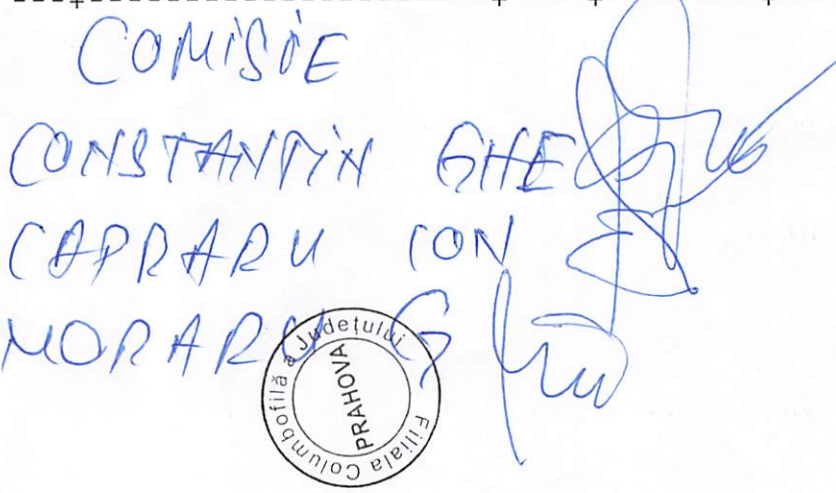 COMISIE
CONSTANTIN GHE
CAPRARU ION
MORARU G
Filiala Columbofilă a Județului
PRAHOVA